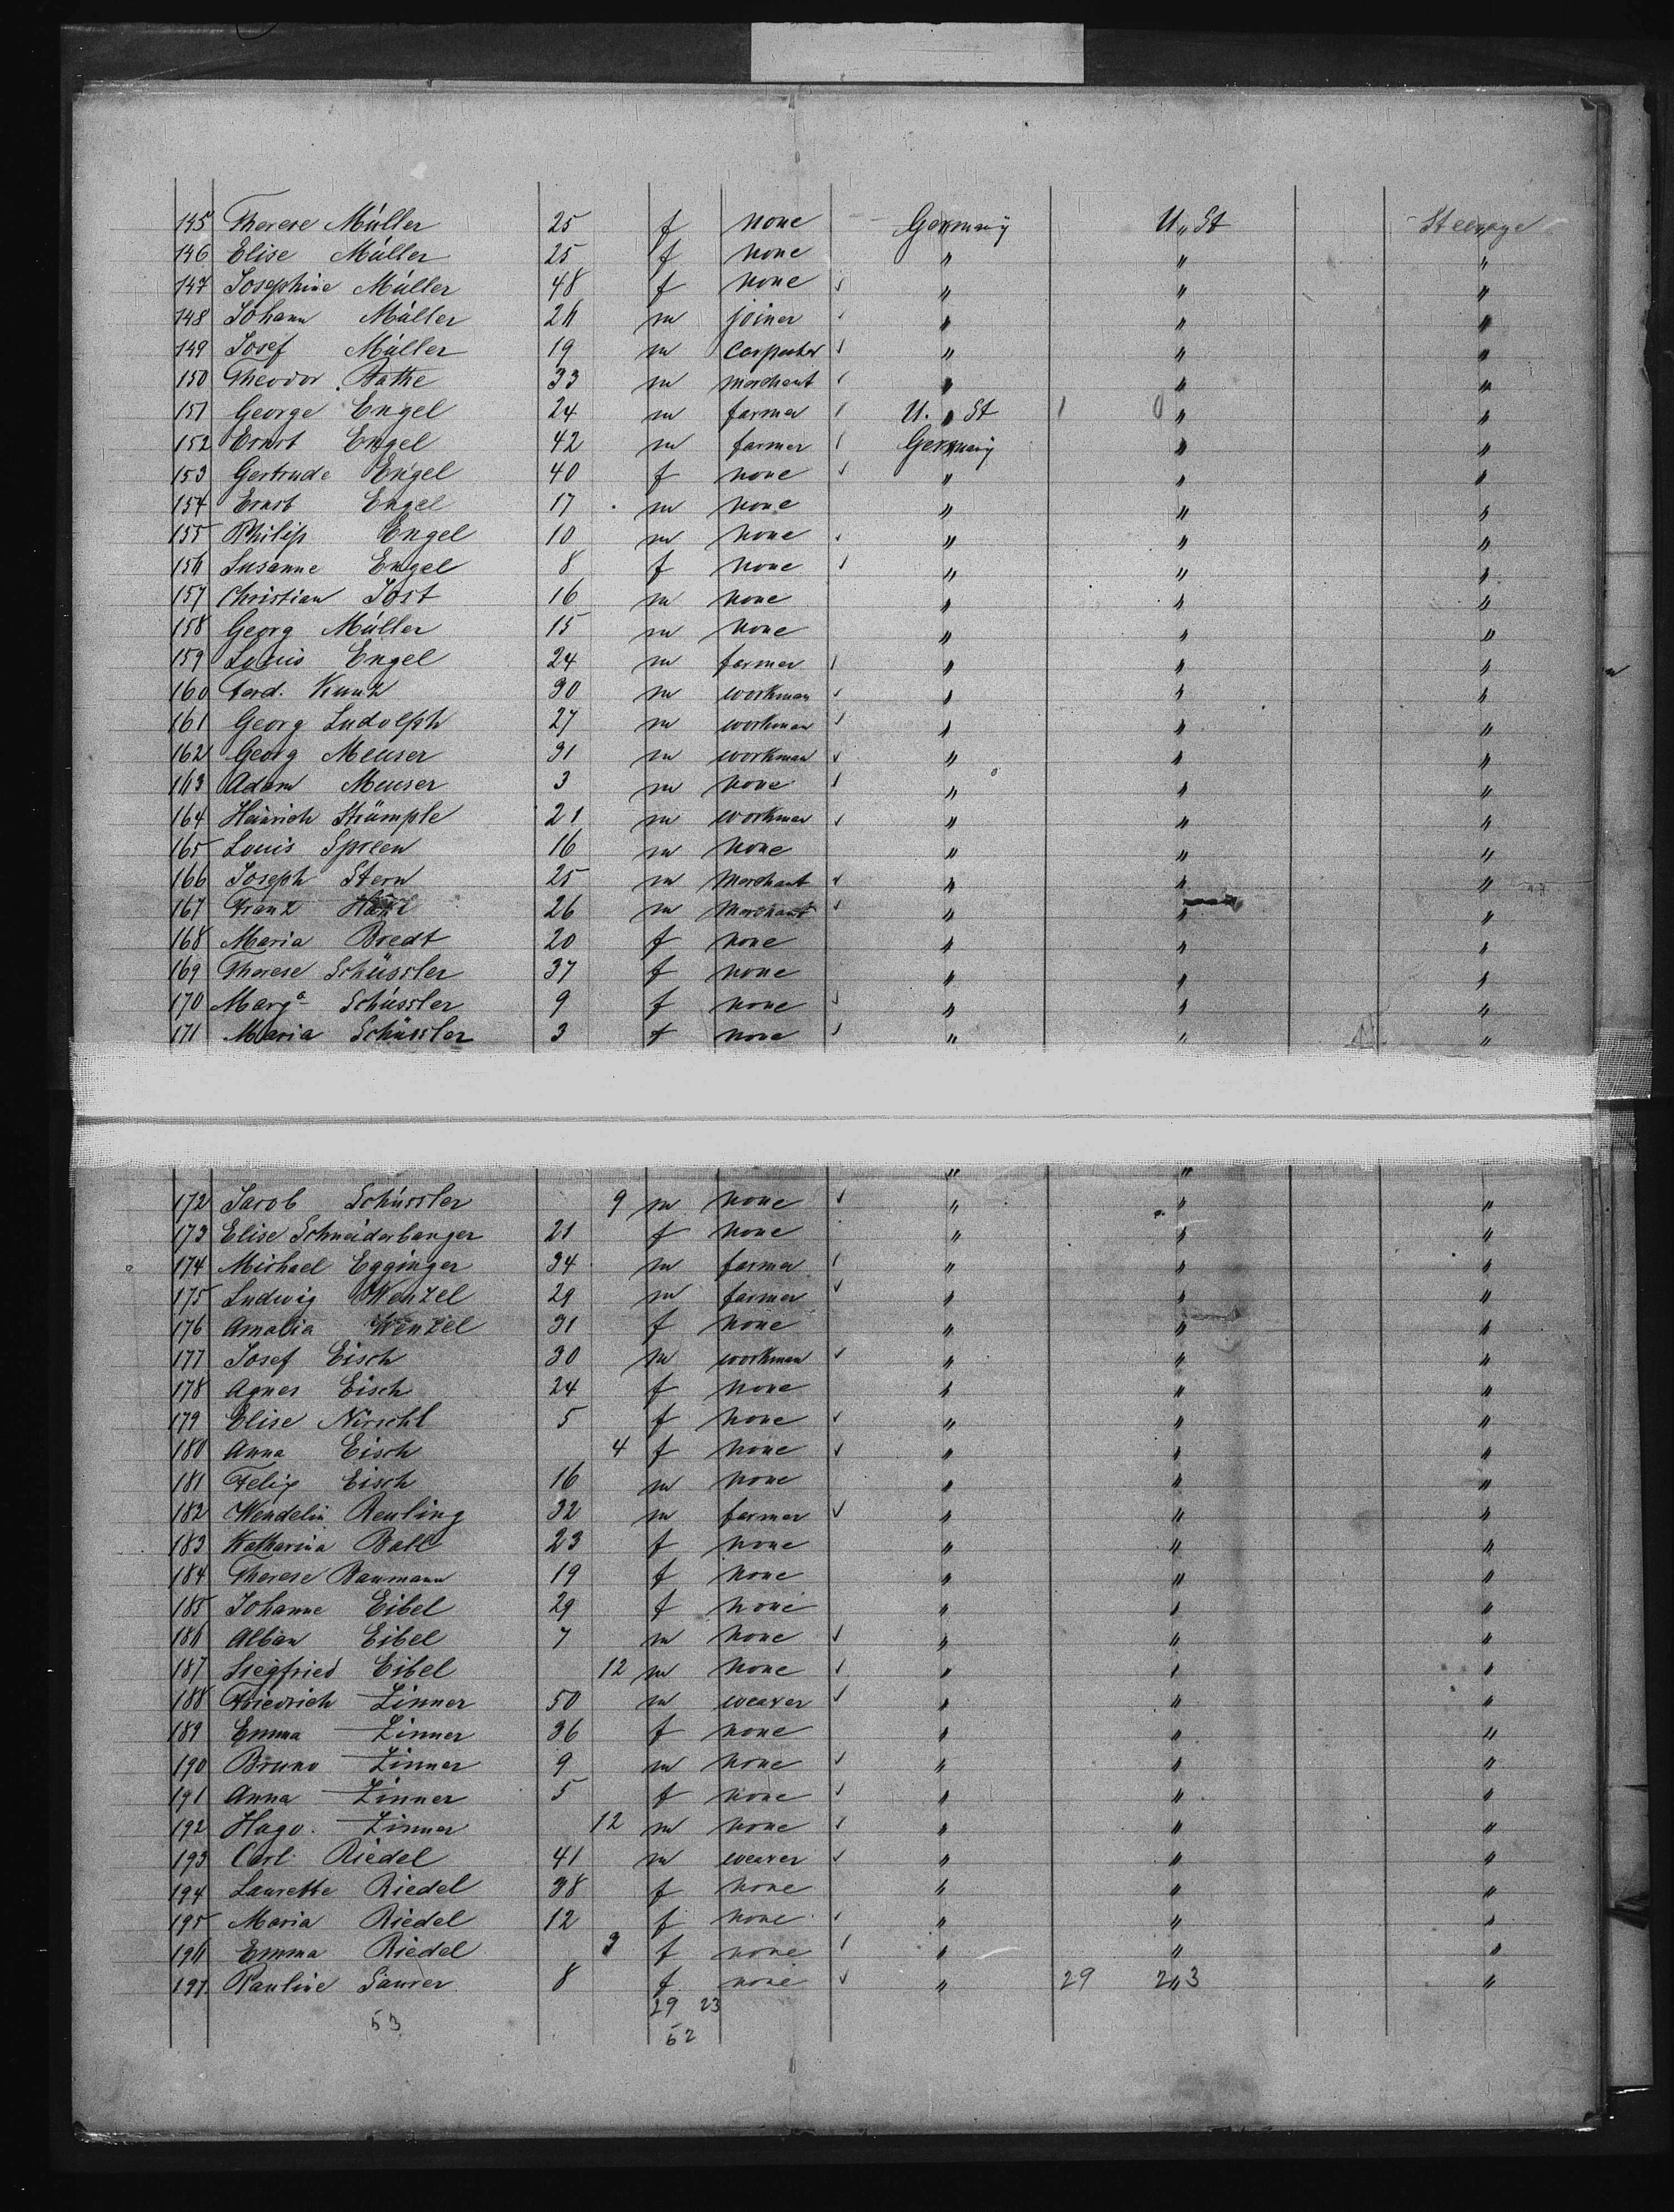 145 Therese Müller 25 f none Germany U. St Steerage
146 Elise Müller 25 f none " " "
147 Josephine Müller 48 f none " " "
148 Johann Müller 26 m joiner " " "
149 Josef Müller 19 m carpenter " " "
150 Theodor Rathe 33 m merchant " " "
151 George Engel 24 m farmer U. St 1 0 " "
152 Ernst Engel 42 m farmer Germany " "
153 Gertrude Engel 40 f none " " "
154 Ernst Engel 17 m none " " "
155 Philip Engel 10 m none " " "
156 Susanne Engel 8 f none " " "
157 Christian Jost 16 m none " " "
158 Georg Müller 15 m none " " "
159 Louis Engel 24 m farmer " " "
160 Ferd. Kunz 30 m workman " " "
161 Georg Ludolph 27 m workman " " "
162 Georg Meuser 31 m workman " " "
163 Adam Meuser 3 m none " " "
164 Heinrich Strümple 21 m workman " " "
165 Louis Spreen 16 m none " " "
166 Joseph Stern 25 m merchant " " "
167 Franz 26 m merchant " " "
168 Maria Bredt 20 f none " " "
169 Therese Schüssler 37 f none " " "
170 Marg.a Schüssler 9 f none " " "
171 Maria Schüssler 3 f none " " "
" "
172 Jacob Schüssler 9 m none " " "
173 Elise Schneiderbanger 21 f none " " "
174 Michael Egginger 34 m farmer " " "
175 Ludwig Wenzel 29 m farmer " " "
176 Amalia Wenzel 31 f none " " "
177 Josef Eisch 30 m workman " " "
178 Agnes Eisch 24 f none " " "
179 Elise Nirschl 5 f none " " "
180 Anna Eisch 4 f none " " "
181 Felix Eisch 16 m none " " "
182 Wendelin Reuling 32 m farmer " " "
183 Katharina Ball 23 f none " " "
184 Therese Baumann 19 f none " " "
185 Johanne Eibel 29 f none " " "
186 Alban Eibel 7 m none " " "
187 Siegfried Eibel 12 m none " " "
188 Friedrich Zinner 50 m weaver " " "
189 Emma Zinner 36 f none " " "
190 Bruno Zinner 9 m none " " "
191 Anna Zinner 5 f none " " "
192 Hugo Zinner 12 m none " " "
193 Carl Riedel 41 m weaver " " "
194 Laurette Riedel 38 f none " " "
195 Maria Riedel 12 f none " " "
196 Emma Riedel 3 f none " " "
197 Pauline Saurer 8 f none " 29 23 " "
29 23
53 52